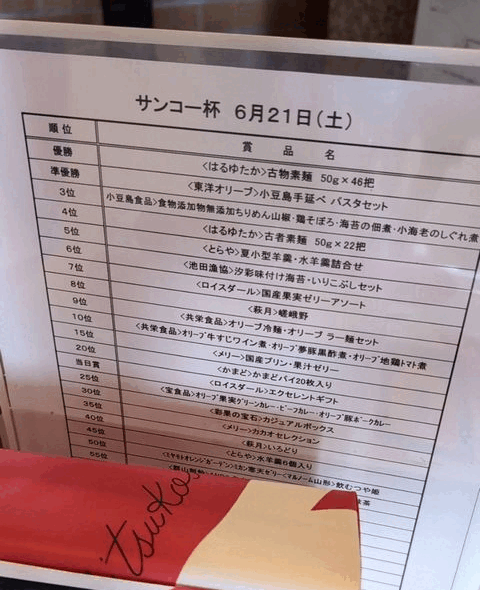 サンコー杯 6月21日(土)
順位 賞品名
優勝 <はるゆたか>古物素麺 50g×46把
準優勝 <東洋オリーブ>小豆島手延べ パスタセット
3位 小豆島食品>食物添加物無添加ちりめん山椒・鶏そぼろ・海苔の佃煮・小海老のしぐれ煮
4位 <はるゆたか>古者素麺 50g×22把
5位 <とらや>夏小型羊羹・水羊羹詰合せ
6位 <池田漁協>汐彩味付け海苔・いりこぶしセット
7位 <ロイスダール>国産果実ゼリーアソート
8位 <萩月>嵯峨野
9位 <共栄食品>オリーブ冷麺・オリーブ ラー麺セット
10位 <共栄食品>オリーブ牛すじワイン煮・オリーブ夢豚黒酢煮・オリーブ地鶏トマト煮
15位 <メリー>国産プリン・果汁ゼリー
20位 <かまど>かまどパイ20枚入り
当日賞 <ロイスダール>エクセレントギフト
25位 <宝食品>オリーブ果実グリーンカレー・ビーフカレー・オリーブ豚ポークカレー
30位 <彩果の宝石>カジュアルボックス
35位 <メリー>カカオセレクション
40位 <萩月>いろどり
45位 <とらや>水羊羹6個入り
50位 <ミヤモトオレンジガーデン>ミカン寒天ゼリー<マルノーム山形>飲むつや姫
55位
itsuko